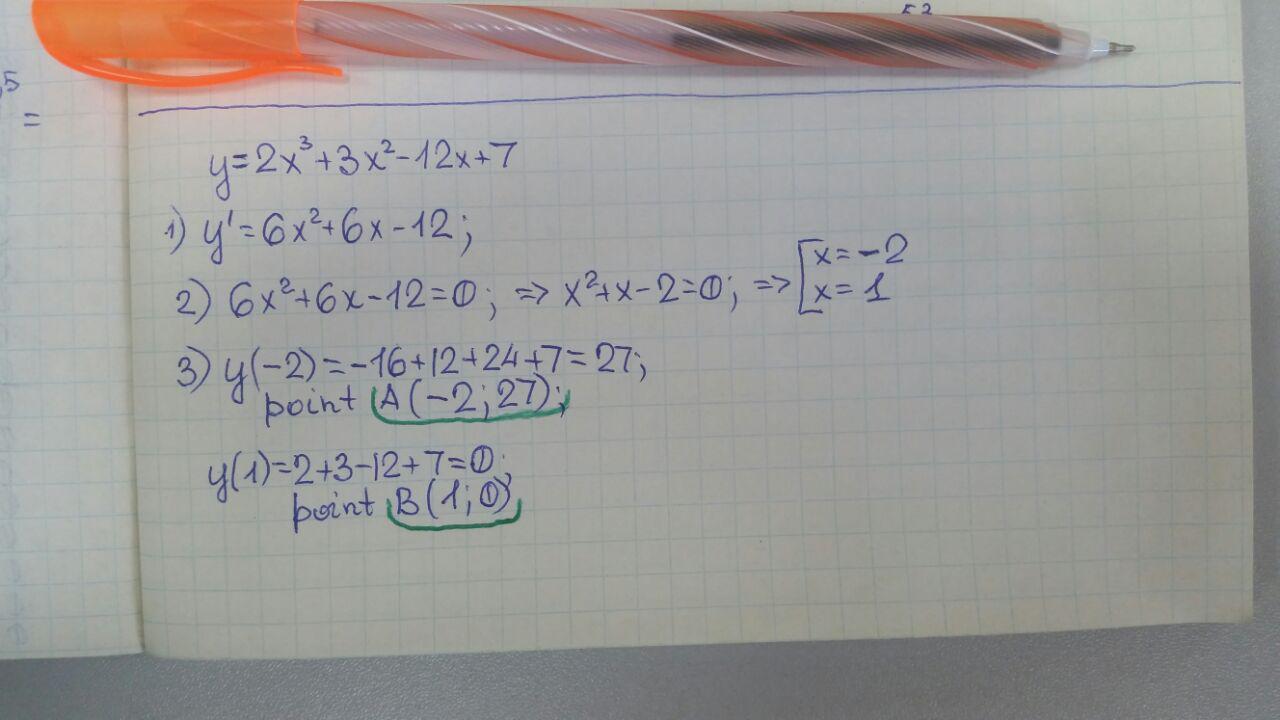 53
5
=
y=2x³+3x²-12x+7
1) y'=6x²+6x-12;
2) 6x²+6x-12=0; => x²+x-2=0; => [x=-2
x=1
3) y(-2)=-16+12+24+7=27;
point A(-2;27);
y(1)=2+3-12+7=0;
point B(1;0)